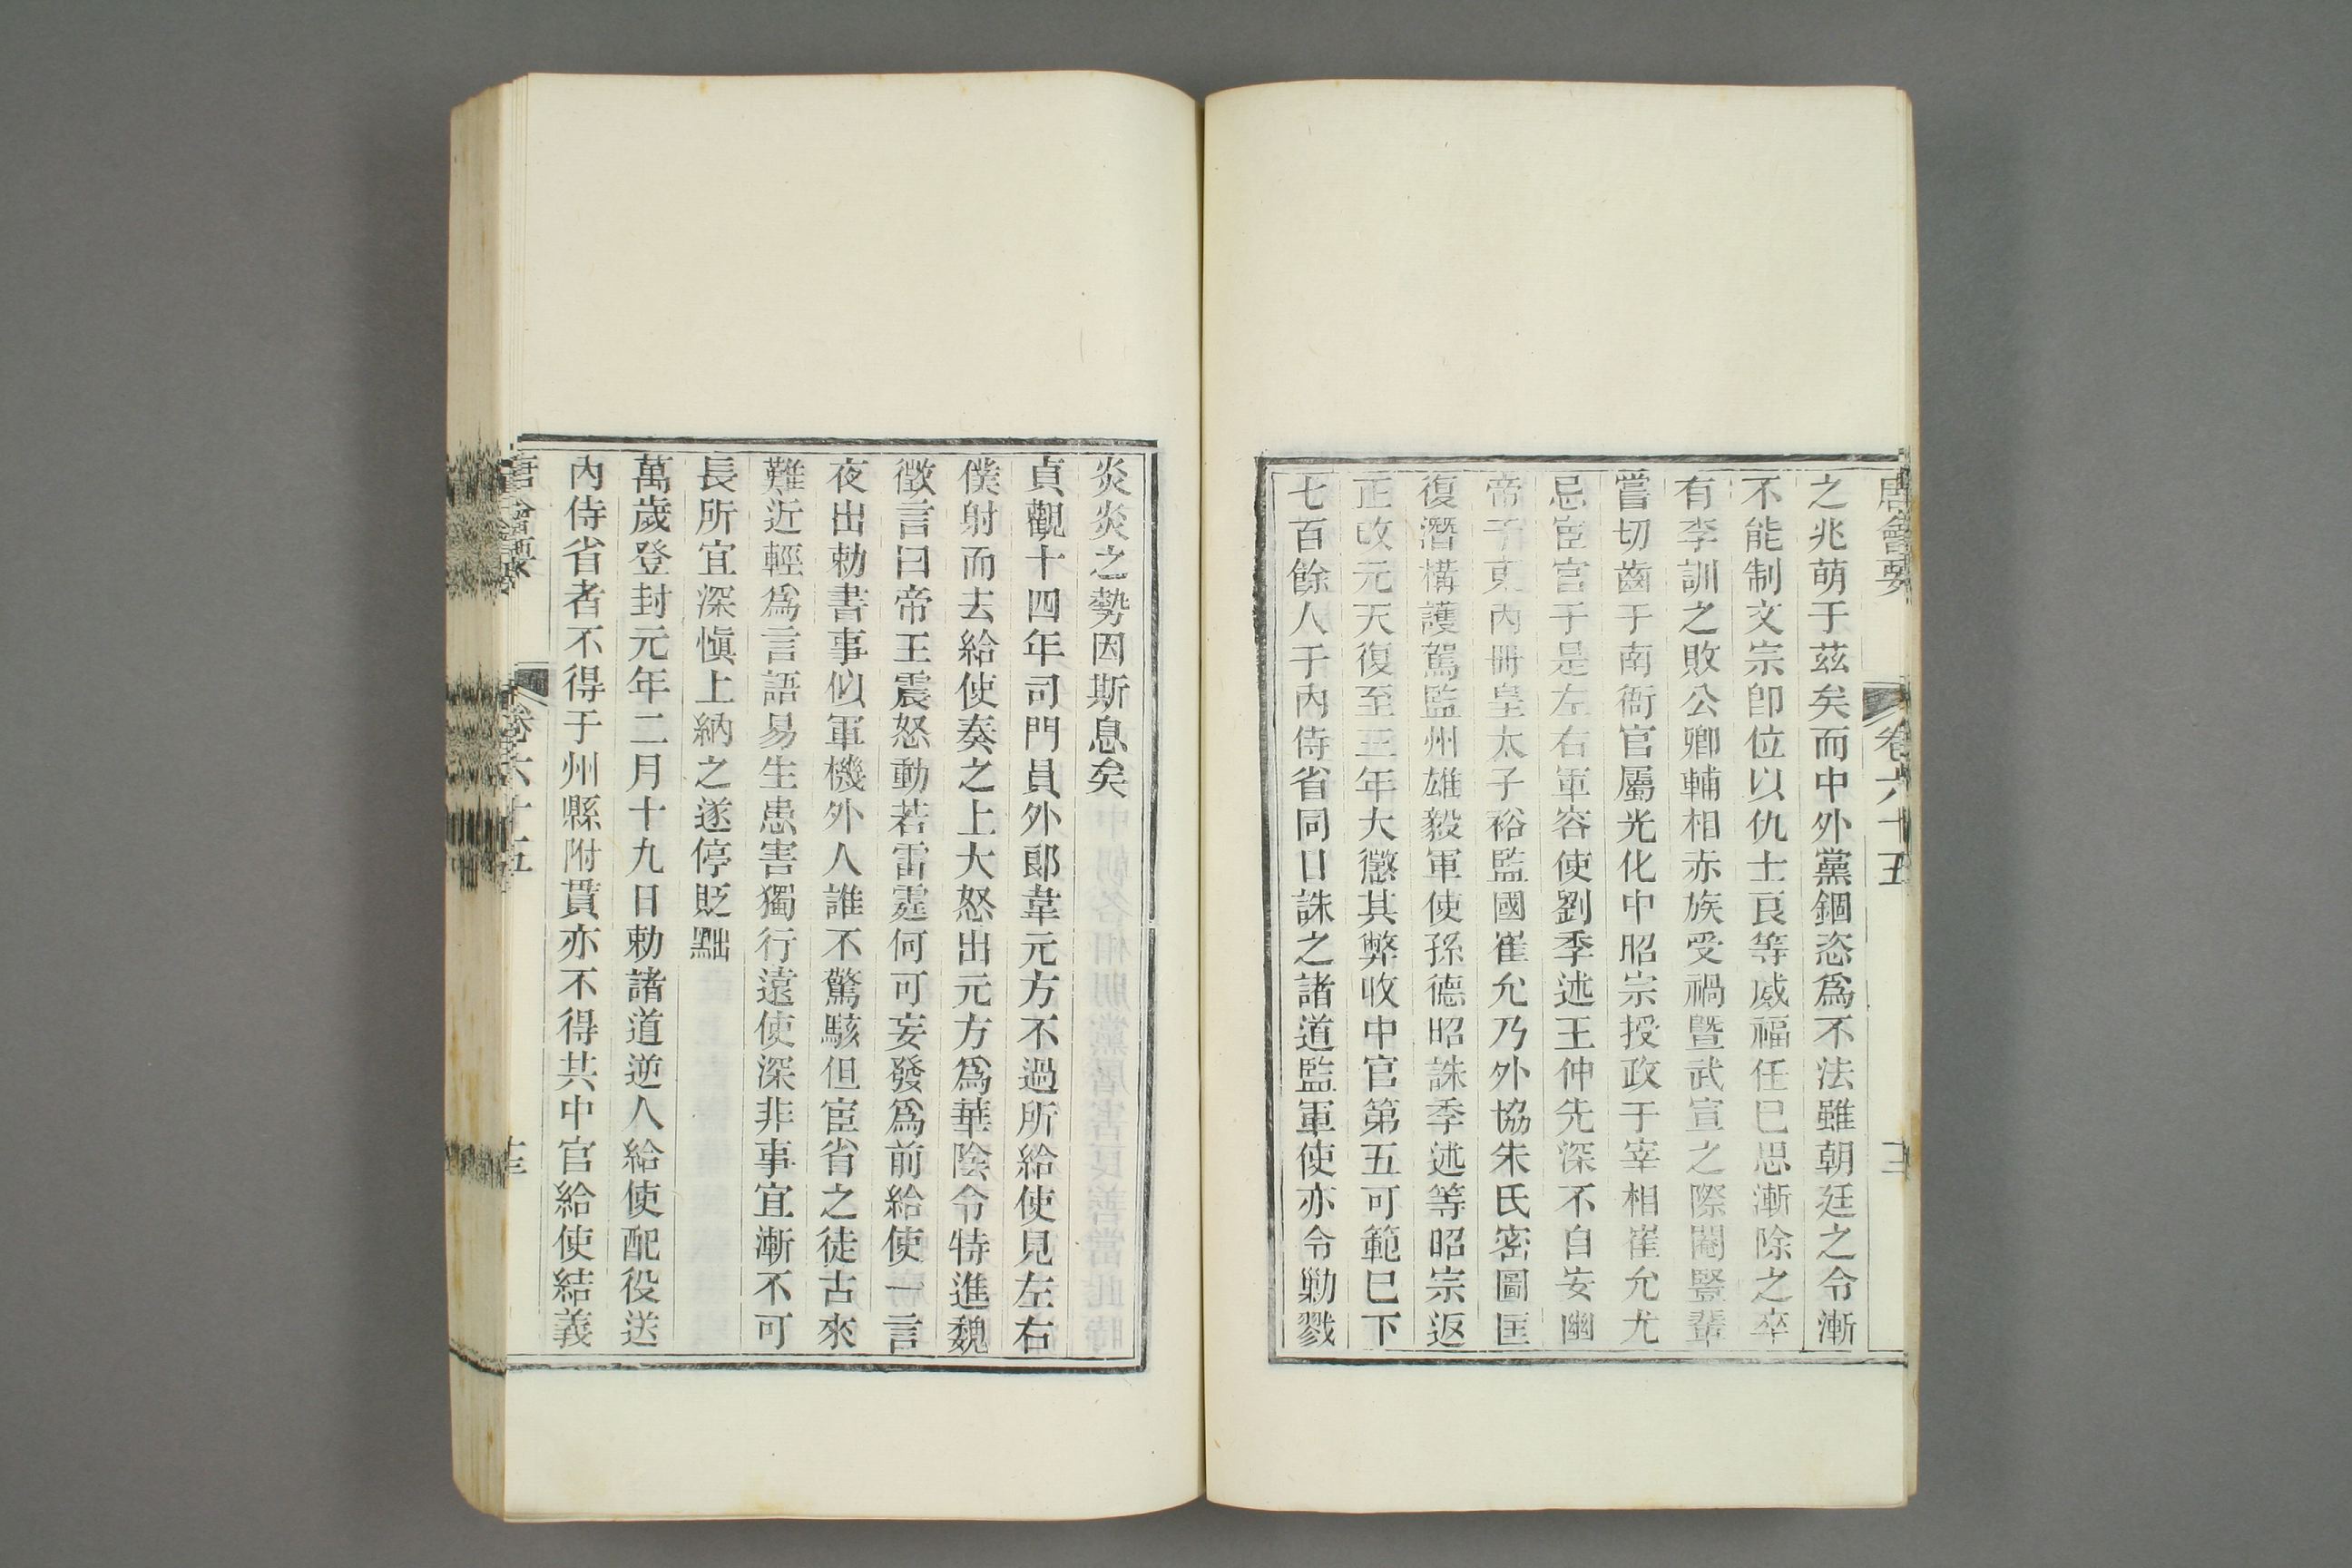 唐會要 卷六十五 十二
之兆萌于茲矣而中外黨錮恣爲不法雖朝廷之令漸
不能制文宗卽位以仇士良等威福任已思漸除之卒
有李訓之敗公卿輔相赤族受禍曁武宣之際閹豎輩
嘗切齒于南衙官屬光化中昭宗授政于宰相崔允尤
忌宦官于是左右軍容使劉季述王仲先深不自安幽
帝于東內冊皇太子裕監國崔允乃外協朱氏密圖匡
復潛構護駕監州雄毅軍使孫德昭誅季述等昭宗返
正改元天復至三年大懲其弊收中官第五可範已下
七百餘人于內侍省同日誅之諸道監軍使亦令勦戮
炎炎之勢因斯息矣
貞觀十四年司門員外郞韋元方不過所給使見左右
僕射而去給使奏之上大怒出元方爲華陰令特進魏
徵言曰帝王震怒動若雷霆何可妄發爲前給使一言
夜出勅書事似軍機外人誰不驚駭但宦省之徒古來
難近輕爲言語易生患害獨行遠使深非事宜漸不可
長所宜深愼上納之遂停貶黜
萬歲登封元年二月十九日勅諸道逆人給使配役送
內侍省者不得于州縣附貫亦不得共中官給使結義
唐會要 卷六十五 十三